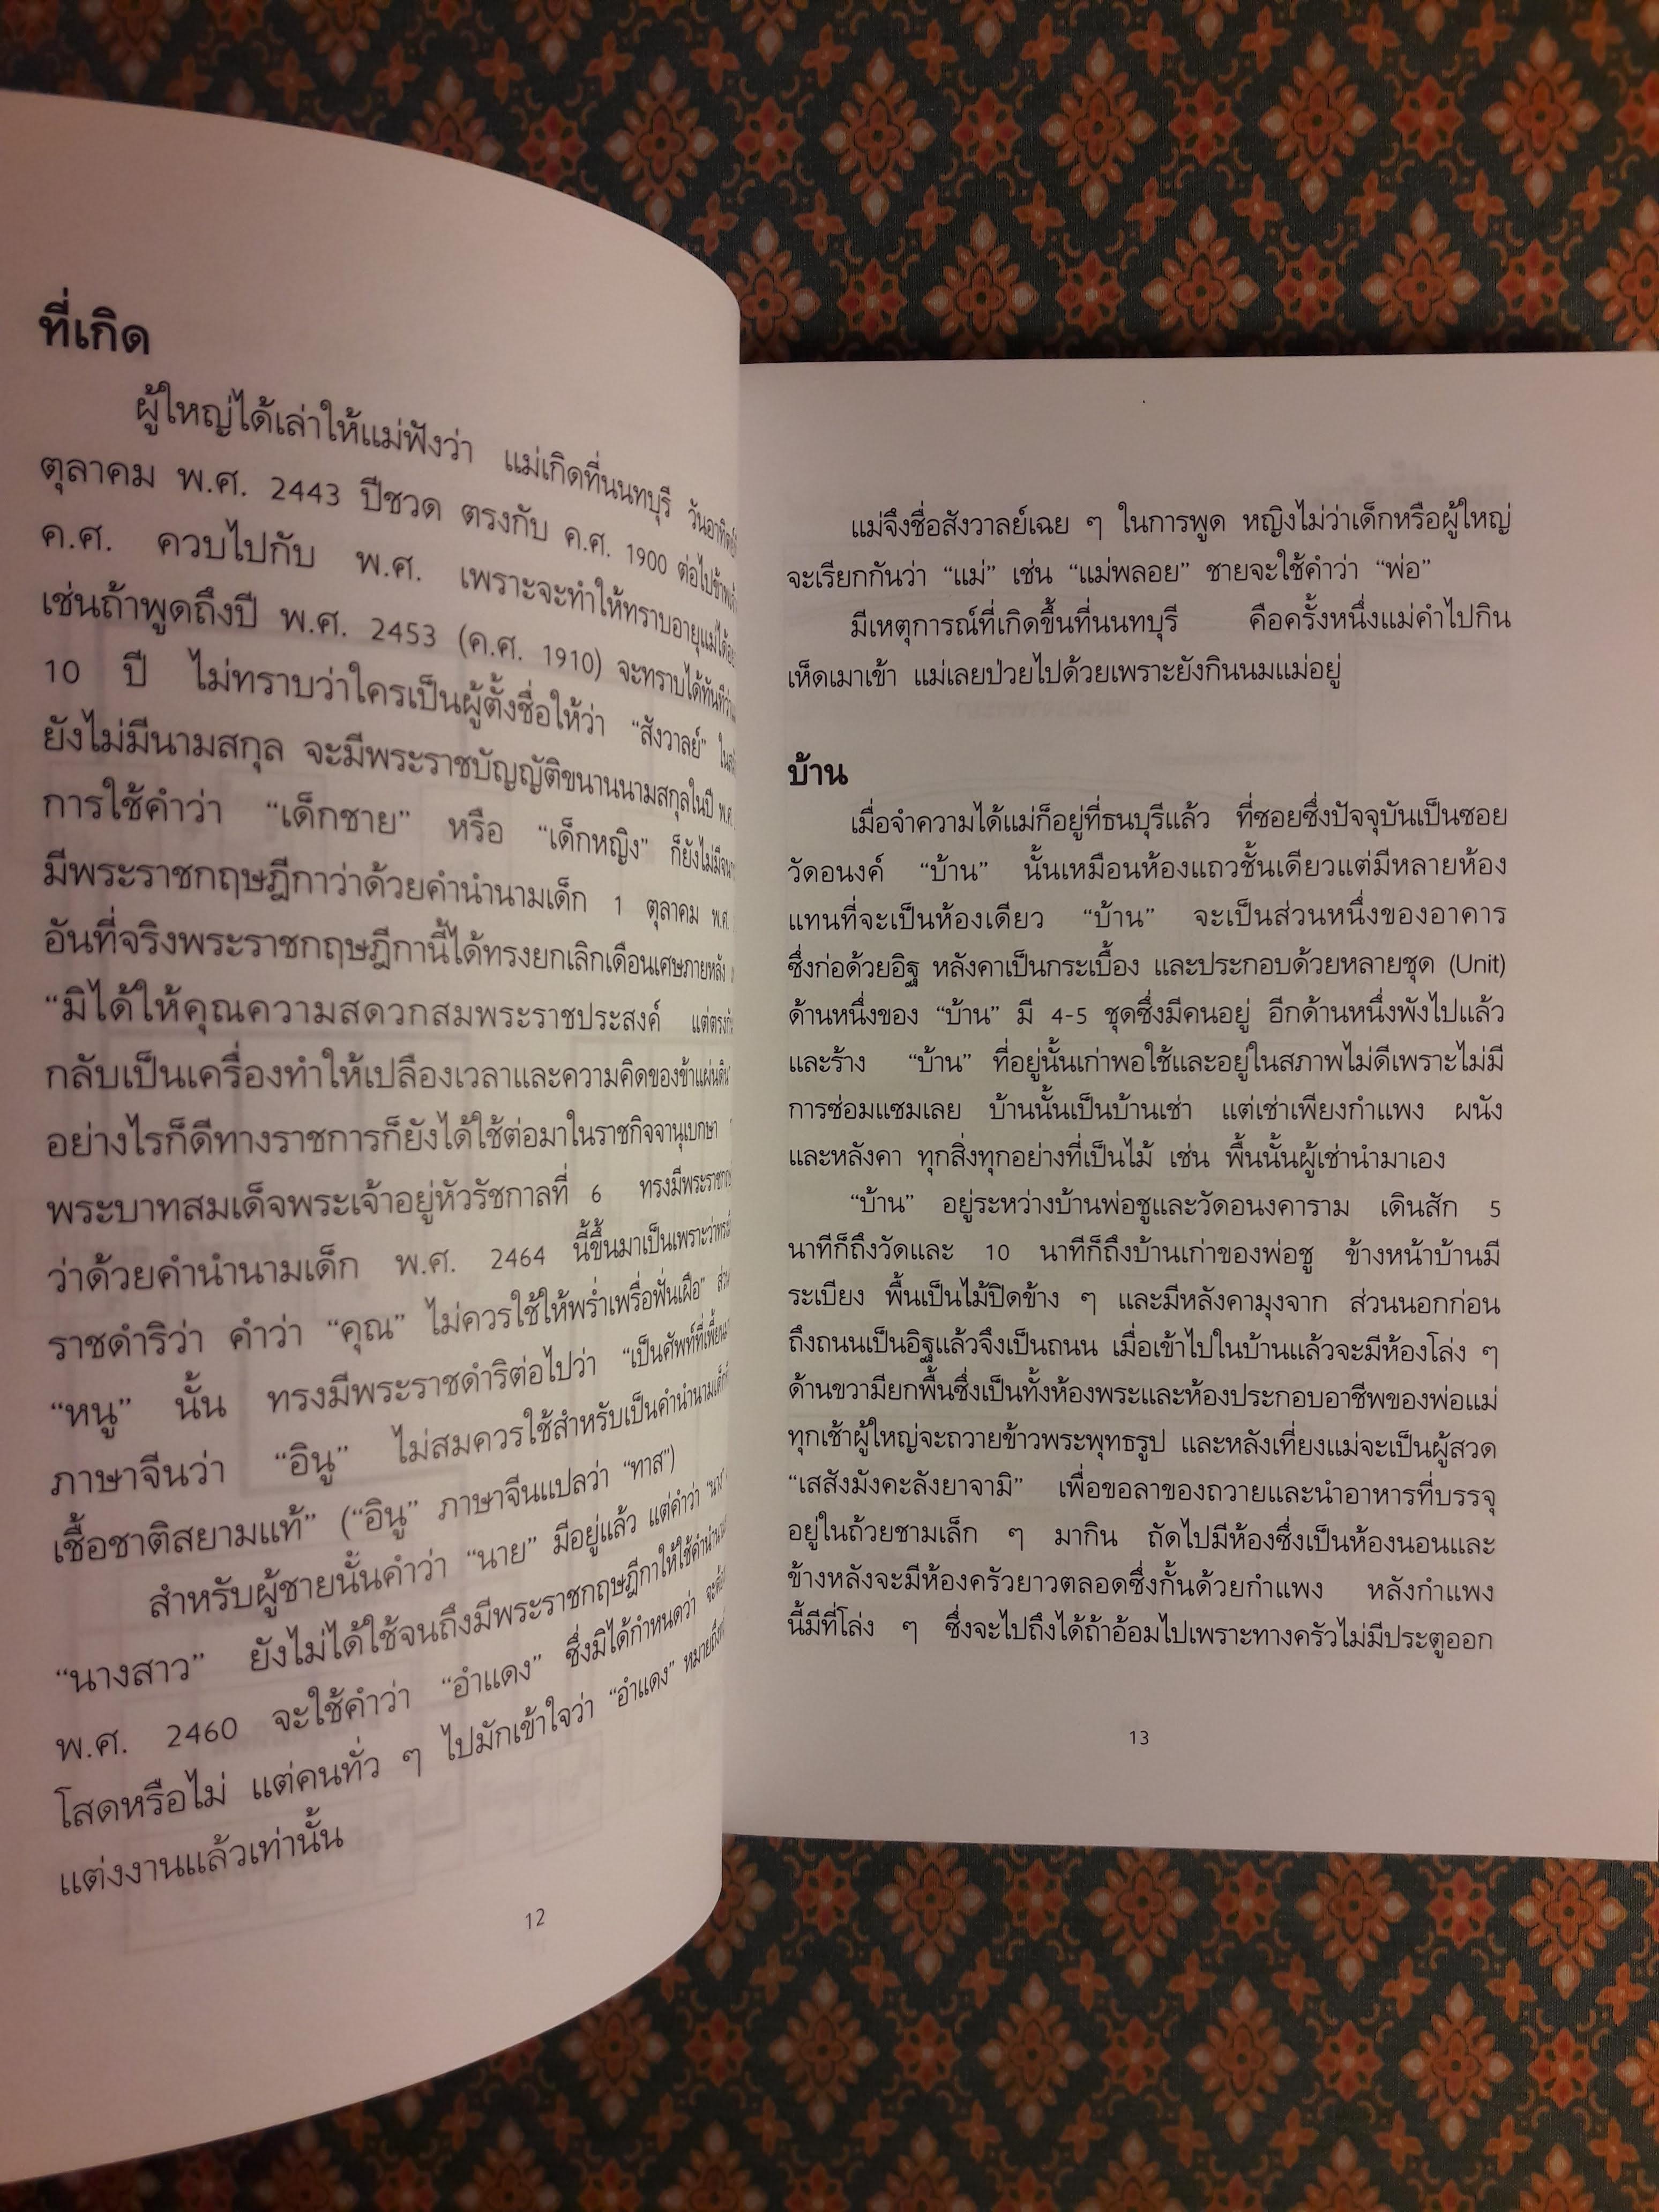 ที่เกิด
ผู้ใหญ่ได้เล่าให้แม่ฟังว่า แม่เกิดที่นนทบุรี
ตุลาคม พ.ศ. 2443 ปีชวด ตรงกับ ค.ศ. 1900 ต่อไปข้าพเจ้า
ค.ศ. ควบไปกับ พ.ศ. เพราะจะทำให้ทราบอายุแม่ได้
เช่นถ้าพูดถึงปี พ.ศ. 2453 (ค.ศ. 1910) จะทราบได้ทันที
10 ปี ไม่ทราบว่าใครเป็นผู้ตั้งชื่อให้ว่า “สังวาลย์”
ยังไม่มีนามสกุล จะมีพระราชบัญญัติขนานนามสกุลในปี พ.ศ.
การใช้คำว่า “เด็กชาย” หรือ “เด็กหญิง” ก็ยังไม่มี
มีพระราชกฤษฎีกาว่าด้วยคำนำนามเด็ก 1 ตุลาคม พ.ศ.
อันที่จริงพระราชกฤษฎีกานี้ได้ทรงยกเลิกเดือนเศษภายหลัง
“มิได้ให้คุณความสดวกสมพระราชประสงค์
กลับเป็นเครื่องทำให้เปลืองเวลาและความคิดของข้าแผ่นดิน”
อย่างไรก็ดีทางราชการก็ยังได้ใช้ต่อมาในราชกิจจานุเบกษา
พระบาทสมเด็จพระเจ้าอยู่หัวรัชกาลที่ 6 ทรงมี
ว่าด้วยคำนำนามเด็ก พ.ศ. 2464 นี้ขึ้นมาเป็นเพราะว่า
ราชดำริว่า คำว่า “คุณ” ไม่ควรใช้ให้พร่ำเพรื่อฟั่นเฝือ”
“หนู” นั้น ทรงมีพระราชดำริต่อไปว่า “เป็นศัพท์ที่
ภาษาจีนว่า “อินู” ไม่สมควรใช้สำหรับเป็นคำนำนาม
เชื้อชาติสยามแท้” (“อินู” ภาษาจีนแปลว่า “ทาส”)
สำหรับผู้ชายนั้นคำว่า “นาย” มีอยู่แล้ว แต่คำว่า
“นางสาว” ยังไม่ได้ใช้จนถึงมีพระราชกฤษฎีกาให้ใช้
พ.ศ. 2460 จะใช้คำว่า “อำแดง” ซึ่งมิได้กำหนดว่า
โสดหรือไม่ แต่คนทั่ว ๆ ไปมักเข้าใจว่า “อำแดง”
แต่งงานแล้วเท่านั้น
12
แม่จึงชื่อสังวาลย์เฉย ๆ ในการพูด หญิงไม่ว่าเด็กหรือผู้ใหญ่
จะเรียกกันว่า “แม่” เช่น “แม่พลอย” ชายจะใช้คำว่า “พ่อ”
มีเหตุการณ์ที่เกิดขึ้นที่นนทบุรี คือครั้งหนึ่งแม่คำไปกิน
เห็ดเมาเข้า แม่เลยป่วยไปด้วยเพราะยังกินนมแม่อยู่
บ้าน
เมื่อจำความได้แม่ก็อยู่ที่ธนบุรีแล้ว ที่ซอยซึ่งปัจจุบันเป็นซอย
วัดอนงค์ “บ้าน” นั้นเหมือนห้องแถวชั้นเดียวแต่มีหลายห้อง
แทนที่จะเป็นห้องเดียว “บ้าน” จะเป็นส่วนหนึ่งของอาคาร
ซึ่งก่อด้วยอิฐ หลังคาเป็นกระเบื้อง และประกอบด้วยหลายชุด (Unit)
ด้านหนึ่งของ “บ้าน” มี 4-5 ชุดซึ่งมีคนอยู่ อีกด้านหนึ่งพังไปแล้ว
และร้าง “บ้าน” ที่อยู่นั้นเก่าพอใช้และอยู่ในสภาพไม่ดีเพราะไม่มี
การซ่อมแซมเลย บ้านนั้นเป็นบ้านเช่า แต่เช่าเพียงกำแพง ผนัง
และหลังคา ทุกสิ่งทุกอย่างที่เป็นไม้ เช่น พื้นนั้นผู้เช่านำมาเอง
“บ้าน” อยู่ระหว่างบ้านพ่อชูและวัดอนงคาราม เดินสัก 5
นาทีก็ถึงวัดและ 10 นาทีก็ถึงบ้านเก่าของพ่อชู ข้างหน้าบ้านมี
ระเบียง พื้นเป็นไม้ปิดข้าง ๆ และมีหลังคามุงจาก ส่วนนอกก่อน
ถึงถนนเป็นอิฐแล้วจึงเป็นถนน เมื่อเข้าไปในบ้านแล้วจะมีห้องโล่ง ๆ
ด้านขวามียกพื้นซึ่งเป็นทั้งห้องพระและห้องประกอบอาชีพของพ่อแม่
ทุกเช้าผู้ใหญ่จะถวายข้าวพระพุทธรูป และหลังเที่ยงแม่จะเป็นผู้สวด
“เสสังมังคะลังยาจามิ” เพื่อขอลาของถวายและนำอาหารที่บรรจุ
อยู่ในถ้วยชามเล็ก ๆ มากิน ถัดไปมีห้องซึ่งเป็นห้องนอนและ
ข้างหลังจะมีห้องครัวยาวตลอดซึ่งกั้นด้วยกำแพง หลังกำแพง
นี้มีที่โล่ง ๆ ซึ่งจะไปถึงได้ถ้าอ้อมไปเพราะทางครัวไม่มีประตูออก
13